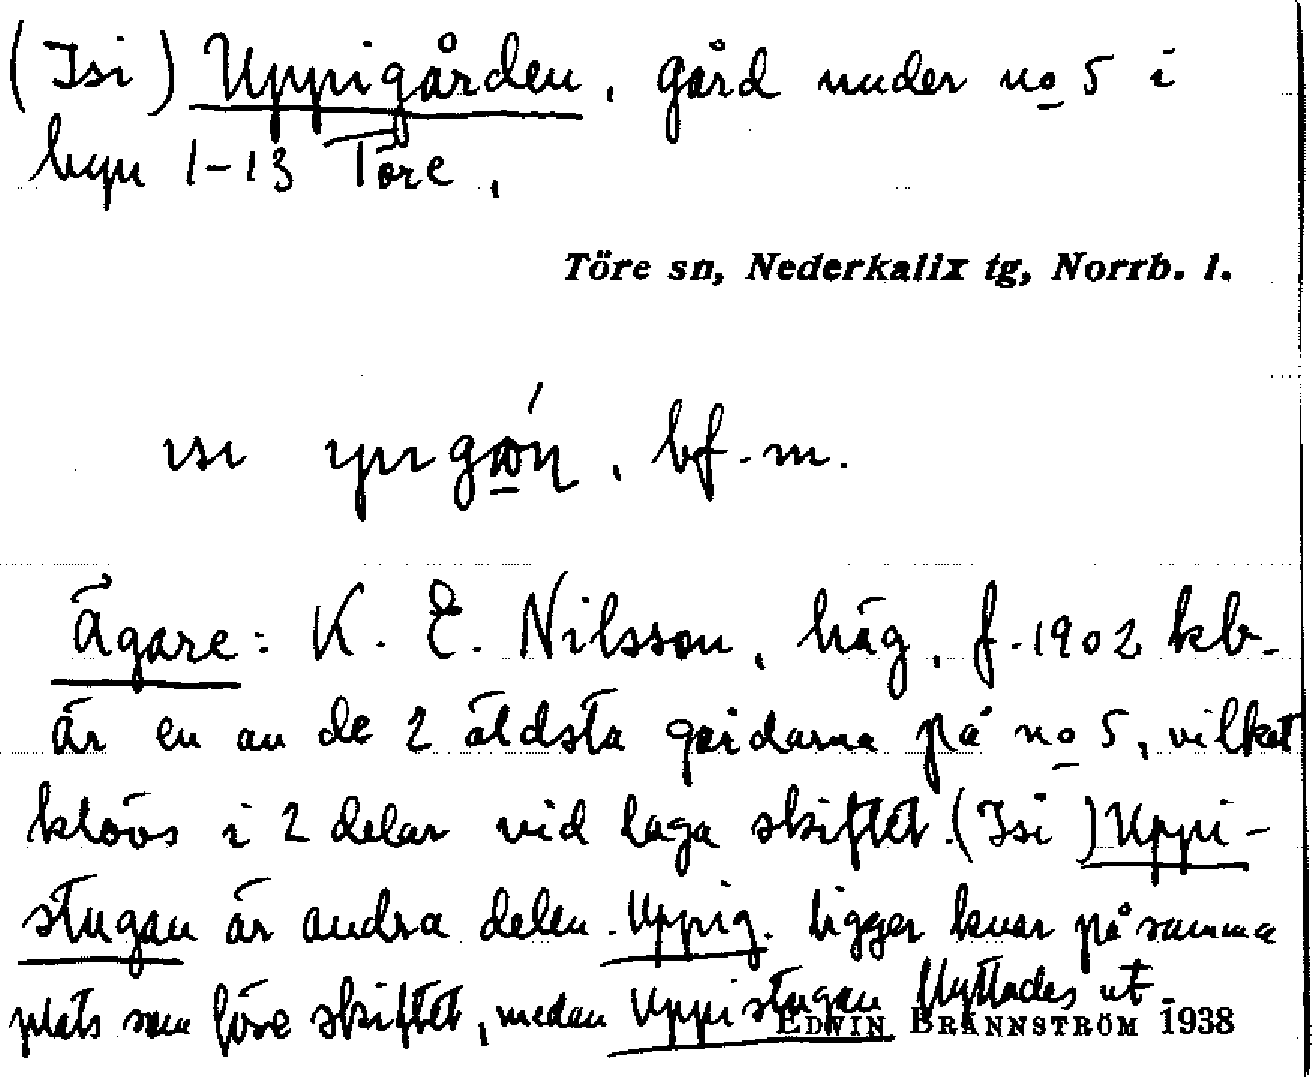 (Isi) Uppigården, gård under no 5 i
byn 1-13 Töre.
Töre sn, Nederkalix tg, Norrb. l.
bf. m.
Ägare: K. E. Nilsson, häg, f. 1902 kb.
är en av de 2 äldsta gårdarna på no 5, vilket
klövs i 2 delar vid laga skiftet. (Isi) Uppi-
stugan är andra delen. Uppig. ligger kvar på samma
plats som före skiftet, medan Uppistugan flyttades ut.
EDVIN BRÄNNSTRÖM 1938